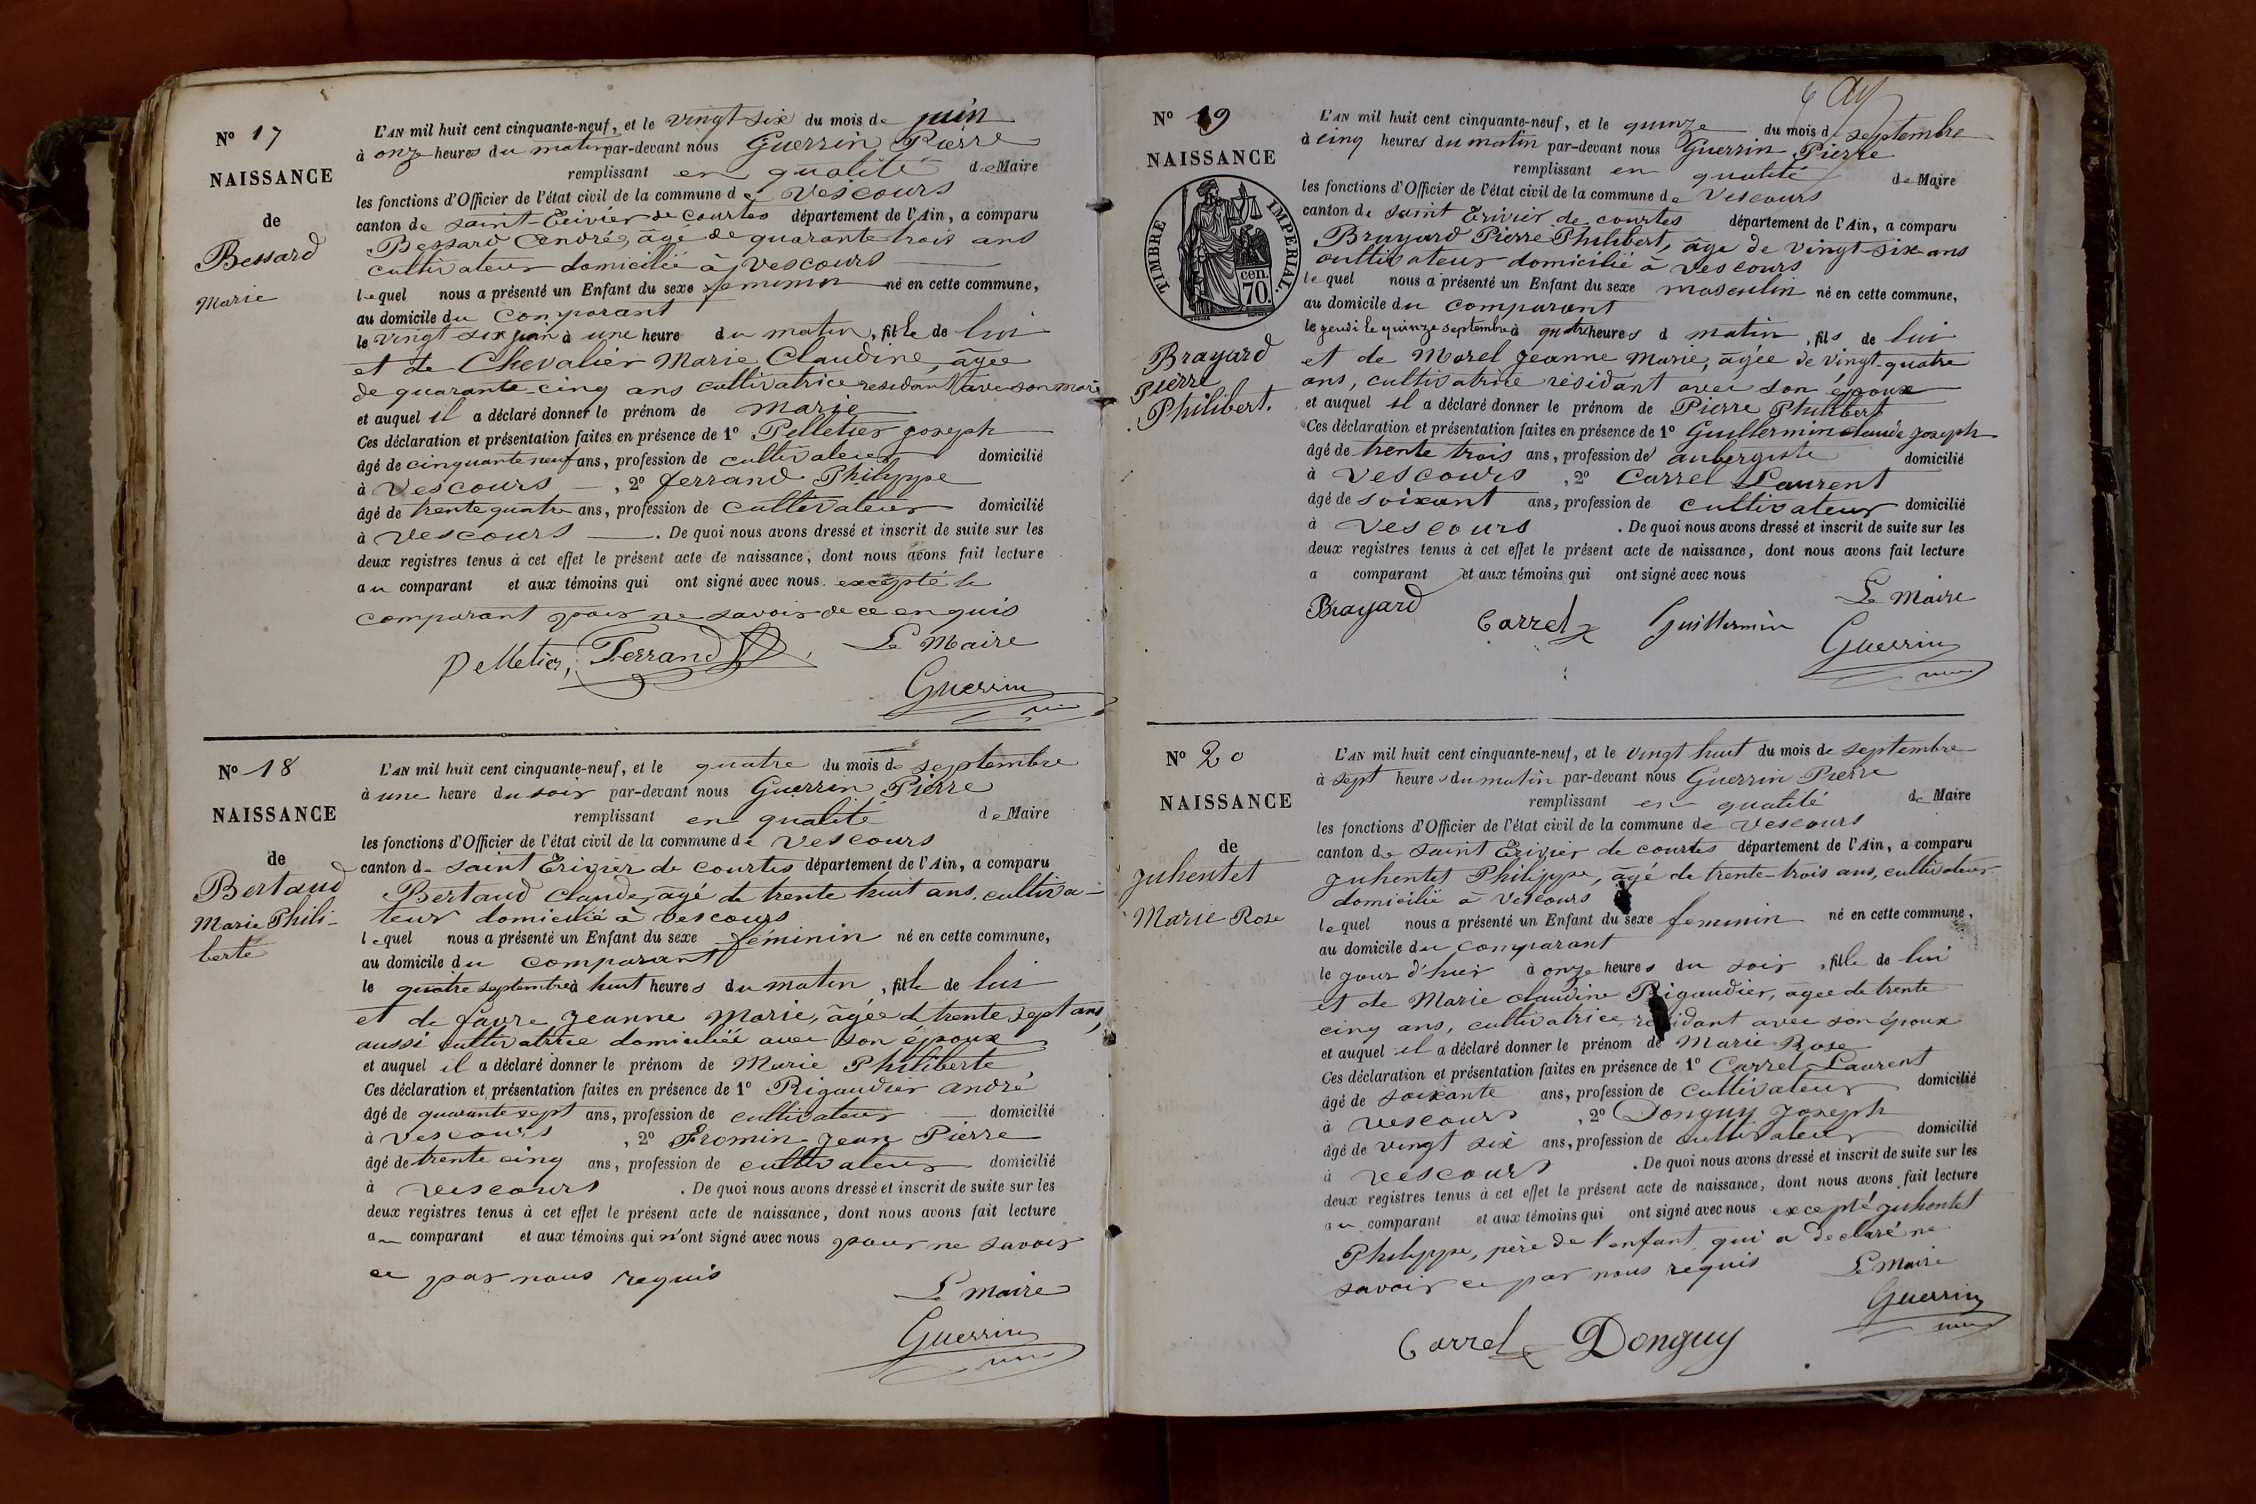 N° 17
NAISSANCE
de
Bessard
Marie
L'AN mil huit cent cinquante-neuf, et le vingt six du mois de juin
à onze heures du matin par-devant nous Guerrin Pierre
remplissant en qualité de Maire
les fonctions d'Officier de l'état civil de la commune de Vescours
canton de saint-Trivier de courtes département de l'Ain, a comparu
Bessard André, âgé de quarante trois ans
cultivateur domicilié à Vescours
lequel nous a présenté un Enfant du sexe feminin né en cette commune,
au domicile du comparant
le vingt six juin à une heure du matin, fille de lui
et de Chevalier Marie Claudine, âgée
de quarante-cinq ans cultivatrice résidant avec son mari
et auquel il a déclaré donner le prénom de Marie
Ces déclaration et présentation faites en présence de 1° Pelletier joseph
âgé de cinquante neuf ans, profession de cultivateur domicilié
à Vescours, 2° ferrand Philippe
âgé de trente quatre ans, profession de cultivateur domicilié
à Vescours. De quoi nous avons dressé et inscrit de suite sur les
deux registres tenus à cet effet le présent acte de naissance, dont nous avons fait lecture
au comparant et aux témoins qui ont signé avec nous excepté le
comparant pour ne savoir de ce enquis
Pelletier, Ferrand Le Maire
Guerrin
N° 18
NAISSANCE
de
Bertaud
Marie Phili-
berte
L'AN mil huit cent cinquante-neuf, et le quatre du mois de septembre
à une heure du soir par-devant nous Guerrin Pierre
remplissant en qualité de Maire
les fonctions d'Officier de l'état civil de la commune de Vescours
canton de saint Trivier de courtes département de l'Ain, a comparu
Bertaud Claude, âgé de trente huit ans, cultiva-
teur domicilié à Vescours
lequel nous a présenté un Enfant du sexe féminin né en cette commune,
au domicile du comparant
le quatre septembre à huit heures du matin, fille de lui
et de favre jeanne Marie, âgée de trente sept ans,
aussi cultivatrice domiciliée avec son époux
et auquel il a déclaré donner le prénom de Marie Philiberte
Ces déclaration et présentation faites en présence de 1° Rigaudier andré
âgé de quarante sept ans, profession de cultivateur domicilié
à Vescours, 2° Fromin Jean Pierre
âgé de trente cinq ans, profession de cultivateur domicilié
à Vescours. De quoi nous avons dressé et inscrit de suite sur les
deux registres tenus à cet effet le présent acte de naissance, dont nous avons fait lecture
au comparant et aux témoins qui n'ont signé avec nous pour ne savoir
ce par nous requis
Le maire
Guerrin
N° 19
NAISSANCE
TIMBRE IMPERIAL
cen.
70.
Brayard
Pierre
Philibert.
L'AN mil huit cent cinquante-neuf, et le quinze du mois de septembre
à cinq heures du matin par-devant nous Guerrin Pierre
remplissant en qualité de Maire
les fonctions d'Officier de l'état civil de la commune de Vescours
canton de saint Trivier de courtes département de l'Ain, a comparu
Brayard Pierre Philibert, âgé de vingt-six ans
cultivateur domicilié à Vescours
lequel nous a présenté un Enfant du sexe masculin né en cette commune,
au domicile du comparant
le jeudi le quinze septembre à quatre heures d matin, fils de lui
et de Morel jeanne Marie, âgée de vingt-quatre
ans, cultivatrice résidant avec son époux
et auquel il a déclaré donner le prénom de Pierre Philibert
Ces déclaration et présentation faites en présence de 1° Guillermin claude joseph
âgé de trente trois ans, profession de aubergiste domicilié
à Vescours, 2° Carrel Laurent
âgé de soixant ans, profession de cultivateur domicilié
à Vescours. De quoi nous avons dressé et inscrit de suite sur les
deux registres tenus à cet effet le présent acte de naissance, dont nous avons fait lecture
a comparant et aux témoins qui ont signé avec nous
Brayard Carrel Guillermin Le Maire
Guerrin
N° 20
NAISSANCE
de
Juhentet
Marie Rose
L'AN mil huit cent cinquante-neuf, et le vingt huit du mois de septembre
à sept heures du matin par-devant nous Guerrin Pierre
remplissant en qualité de Maire
les fonctions d'Officier de l'état civil de la commune de Vescours
canton de saint Trivier de courtes département de l'Ain, a comparu
Juhentet Philippe, âgé de trente-trois ans, cultivateur
domicilié à Vescours
lequel nous a présenté un Enfant du sexe feminin né en cette commune,
au domicile du comparant
le jour d'hier à onze heures du soir, fille de lui
et de Marie claudine Rigaudier, agée de trente
cinq ans, cultivatrice résidant avec son époux
et auquel il a déclaré donner le prénom de Marie Rose
Ces déclaration et présentation faites en présence de 1° Carrel Laurent
âgé de soixante ans, profession de cultivateur domicilié
à Vescours, 2° Donguy Joseph
âgé de vingt six ans, profession de cultivateur domicilié
à Vescours. De quoi nous avons dressé et inscrit de suite sur les
deux registres tenus à cet effet le présent acte de naissance, dont nous avons fait lecture
au comparant et aux témoins qui ont signé avec nous excepté Juhentet
Philippe, père de l'enfant qui a declaré ne
savoir ce par nous requis Le Maire
Guerrin
Carrel Donguy